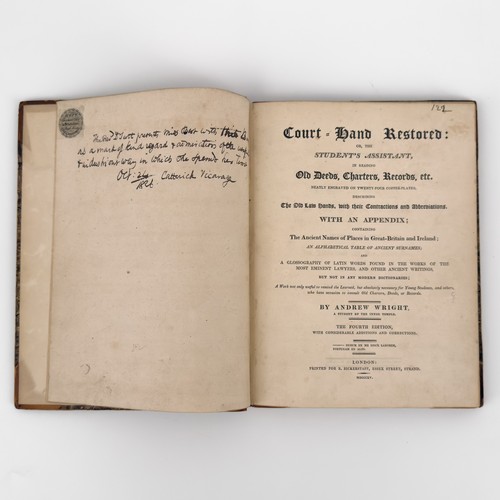 The Revd. D. Scott presents Miss with this
as a mark of kind regard & admiration of the
& industrious way in which she spends her
Oct. Catterick Vicarage
122
Court-Hand Restored:
OR, THE
STUDENT'S ASSISTANT,
IN READING
Old Deeds, Charters, Records, etc.
NEATLY ENGRAVED ON TWENTY-FOUR COPPER-PLATES,
DESCRIBING
The Old Law Hands, with their Contractions and Abbreviations.
WITH AN APPENDIX;
CONTAINING
The Ancient Names of Places in Great-Britain and Ireland;
AN ALPHABETICAL TABLE OF ANCIENT SURNAMES;
AND
A GLOSSOGRAPHY OF LATIN WORDS FOUND IN THE WORKS OF THE
MOST EMINENT LAWYERS, AND OTHER ANCIENT WRITINGS,
BUT NOT IN ANY MODERN DICTIONARIES;
A Work not only useful to remind the Learned, but absolutely necessary for Young Students, and others,
who have occasion to consult Old Charters, Deeds, or Records.
BY ANDREW WRIGHT,
A STUDENT OF THE INNER TEMPLE.
THE FOURTH EDITION,
WITH CONSIDERABLE ADDITIONS AND CORRECTIONS.
LONDON:
PRINTED FOR R. BICKERSTAFF, ESSEX STREET, STRAND.
MDCCCXV.